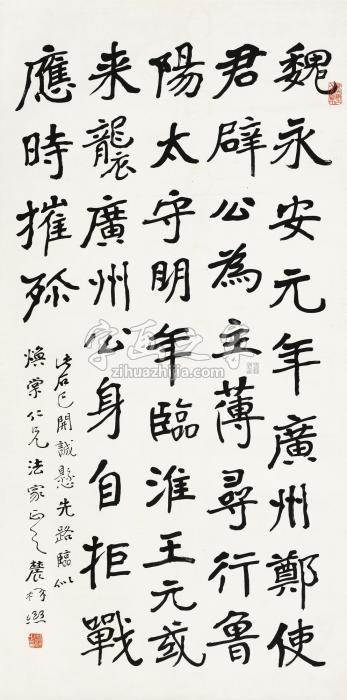 魏永安元年廣州鄭使
君辟公為主薄尋行魯
陽太守明年臨淮王元或
来襲廣州公身自拒戰
應時摧殄
此石已開誠懸先路臨似
煥棠仁兄法家正之
字画之家
zihuazhijia.com